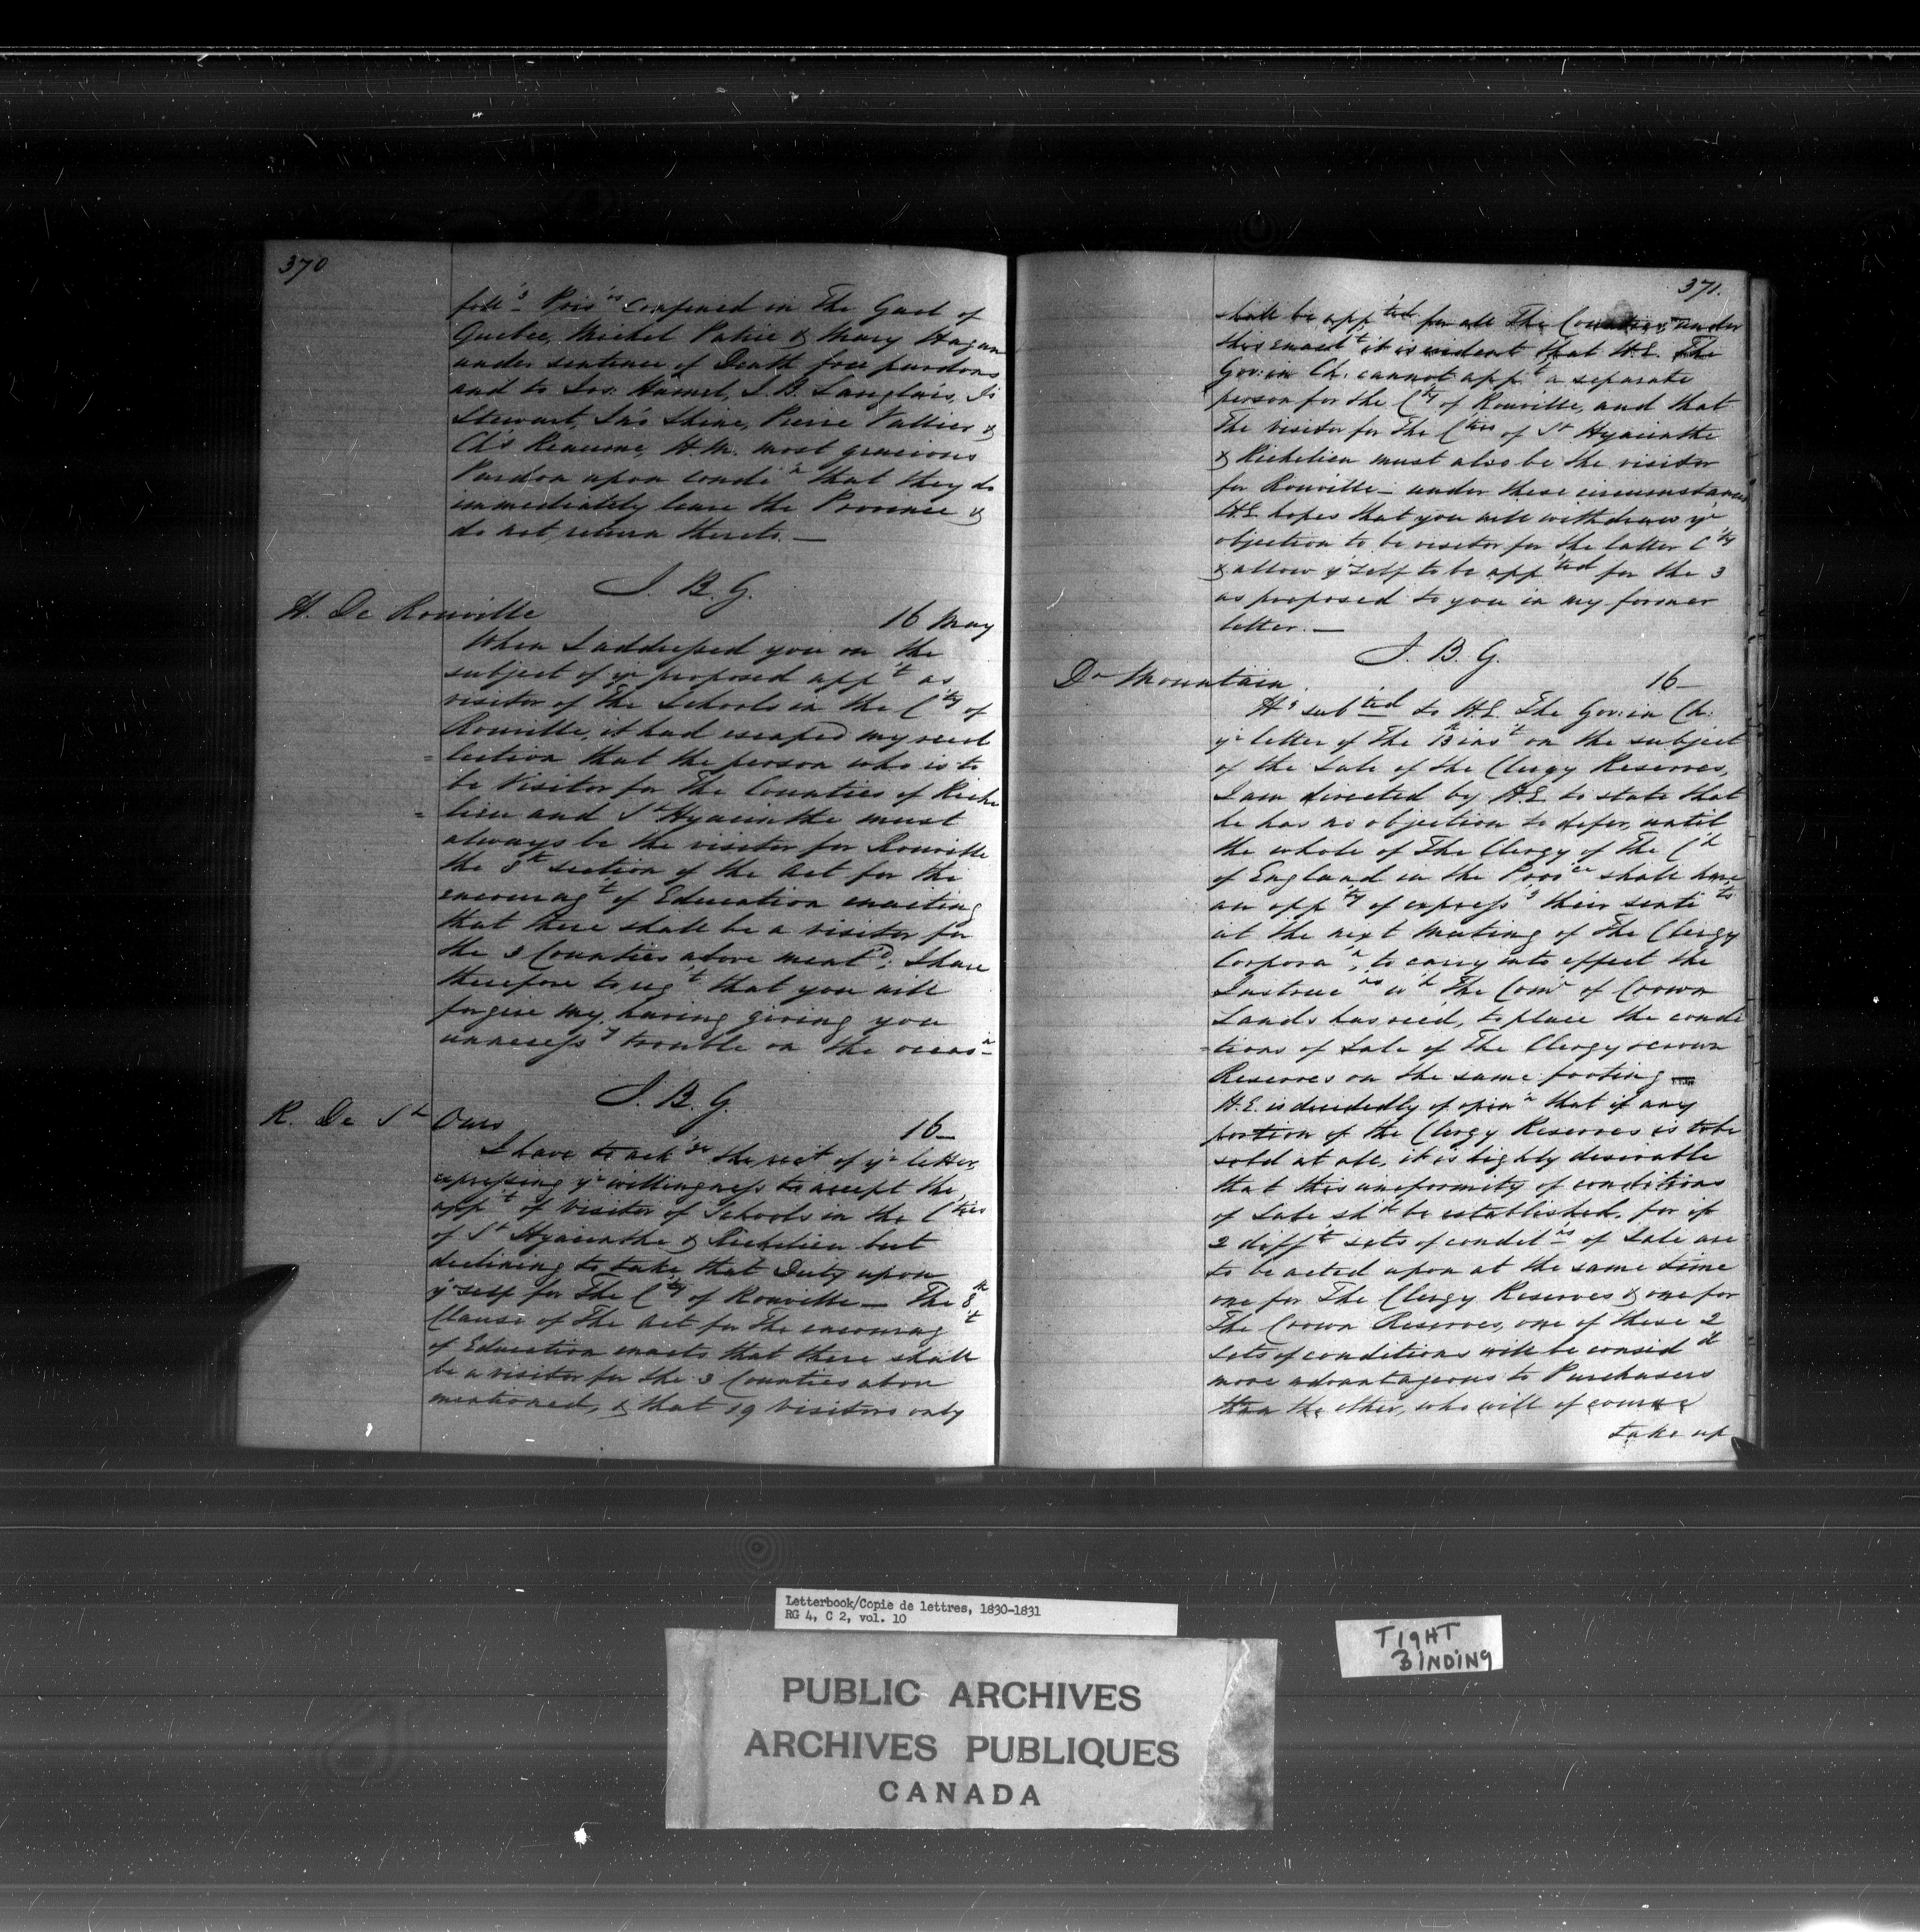 370
foll'g Pris'rs Confined in The Gaol of
Quebec, Michel Patrie & Mary Hagan
under sentence of Death free pardons
and to Jos: Hamel, J. B. Langlois, Js
Stewart, Jn's Shine, Pierre Vallier &
Ch's Reaume, H.M. most gracious
Pardon upon condi'n that they do
immediately leave the Province &
do not return thereto. —
J. B. G.
H. De Rouville 16 May
When I addressed you on the
subject of yr proposed app't as
visitor of The Schools in the C'ty of
Rouville, it had escaped my recol
=lection that the person who is to
be Visitor for The Counties of Riche
=lieu and St Hyacinthe must
always be the visitor for Rouville
the 8th section of the Act for the
encourag't of Education enacting
that there shall be a visitor for
the 3 Counties above ment'd; I have
therefore to reg't that you will
forgive my having giving you
unnecess'y trouble on the occas'n
J. B. G.
R. De St Ours 16—
I have to ack'ge the rect of yr letter,
expressing yr willingness to accept the
app't of Visitor of Schools in the C'ties
of St Hyacinthe & Richelieu but
declining to take that Duty upon
yr self for The C'ty of Rouville — The 8th
Clause of The Act for The encourag't
of Education enacts that there shall
be a visitor for the 3 Counties above
mentioned, & that 19 Visitors only
371.
shall be app'ted for all The Counties, under
this enact't it is evident that H.E. The
Gov: in Ch. cannot app't a separate
person for the C'ty of Rouville, and that
The visitor for The C'ties of St Hyacinthe
& Richelieu must also be the visitor
for Rouville — under these circumstances
H.E. hopes that you will withdraw yr
objection to be visitor for the latter C'ty
& allow yr self to be app'ted for the 3
as proposed to you in my former
letter. —
J. B. G.
Dr Mountain. 16—
H'g sub'ted to H.E. The Gov: in Ch:
yr letter of The 13 ins't on the subject
of the Sale of the Clergy Reserves,
I am directed by H.E. to state that
he has no objection to defer, until
the whole of The Clergy of The C'h
of England in the Prov'ce shall have
an opp'ty of express'g their senti'ts
at the next meeting of The Clergy
Corpora'n, to carry into effect the
Instruc'ns w'h The Com'r of Crown
Lands has recd, to place the condi
=tions of Sale of The Clergy & Crown
Reserves on the same footing —
H.E. is decidedly of opin'n that if any
portion of the Clergy Reserves is to be
sold at all, it is highly desirable
that this uniformity of conditions
of Sale sh'd be established, for if
2 diff't sets of condit'ns of Sale are
to be acted upon at the same time
one for The Clergy Reserves & one for
The Crown Reserves, one of these 2
sets of conditions will be consid'd
more advantageous to Purchasers
than the other, who will of course
take up
Letterbook/Copie de lettres, 1830-1831
RG 4, C 2, vol. 10
TIGHT
BINDING
PUBLIC ARCHIVES
ARCHIVES PUBLIQUES
CANADA